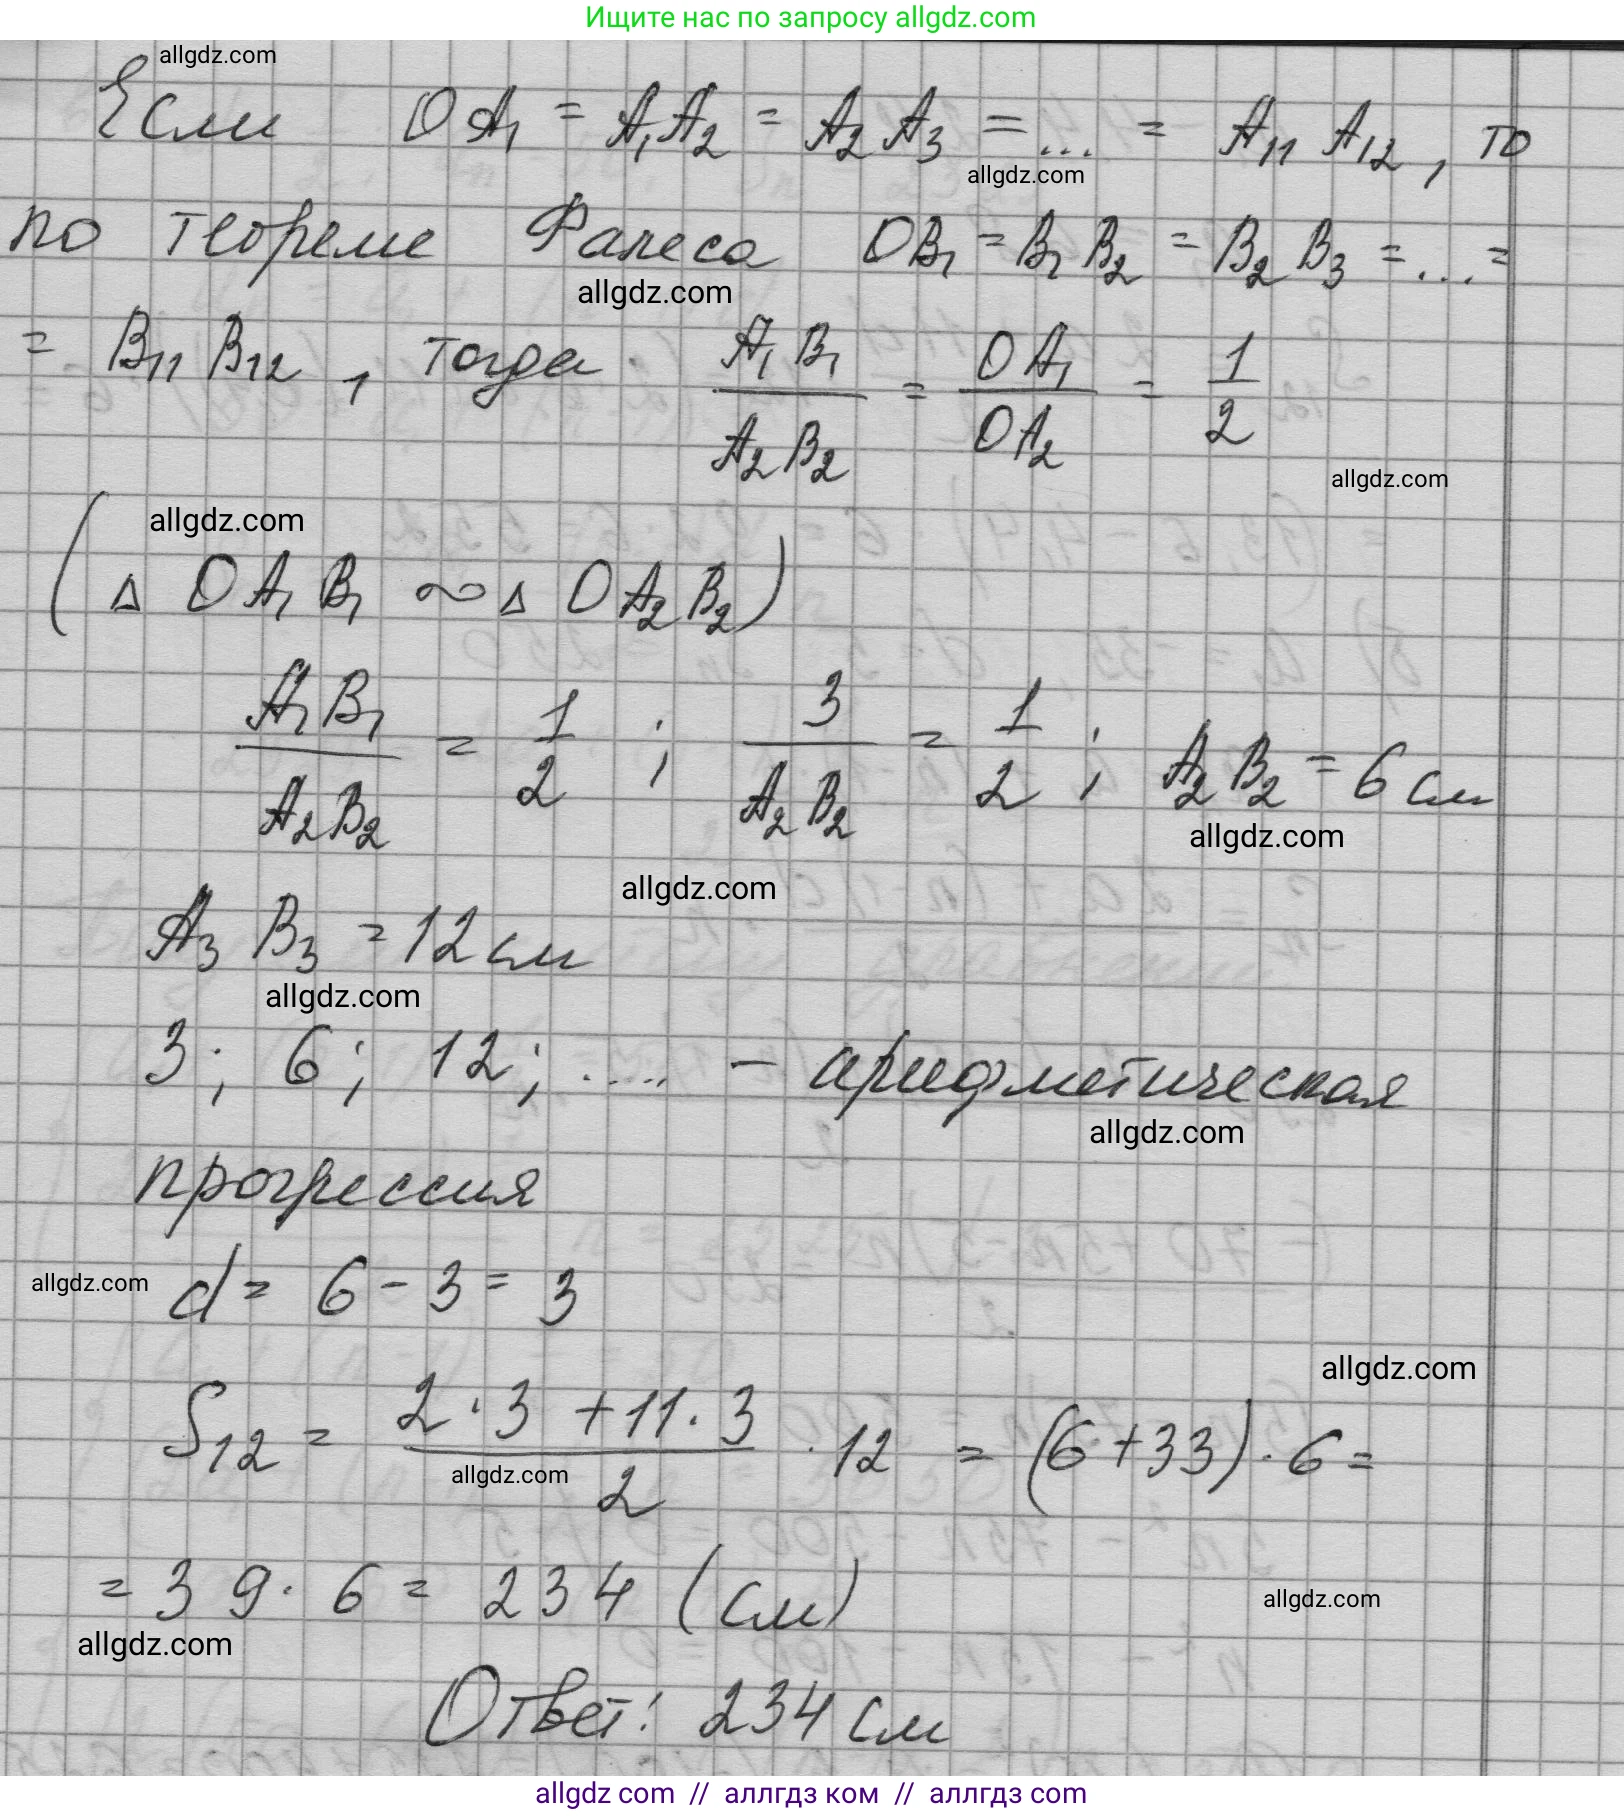 Ищите нас по запросу allgdz.com
allgdz.com
Если OA₁ = A₁A₂ = A₂A₃ = ... = A₁₁A₁₂, то
allgdz.com
по теореме Фалеса OB₁ = B₁B₂ = B₂B₃ = ... =
allgdz.com
= B₁₁B₁₂, тогда A₁B₁/A₂B₂ = OA₁/OA₂ = 1/2
allgdz.com
allgdz.com
(Δ OA₁B₁ ∾ Δ OA₂B₂)
A₁B₁/A₂B₂ = 1/2; 3/A₂B₂ = 1/2; A₂B₂ = 6 см
allgdz.com
allgdz.com
A₃B₃ = 12 см
allgdz.com
3; 6; 12; .... – арифметическая
allgdz.com
прогрессия
allgdz.com
d = 6 - 3 = 3
allgdz.com
S₁₂ = (2·3 + 11·3)/2 · 12 = (6 + 33) · 6 =
allgdz.com
= 39 · 6 = 234 (см)
allgdz.com
allgdz.com
Ответ: 234 см
allgdz.com // аллгдз ком // аллгдз com